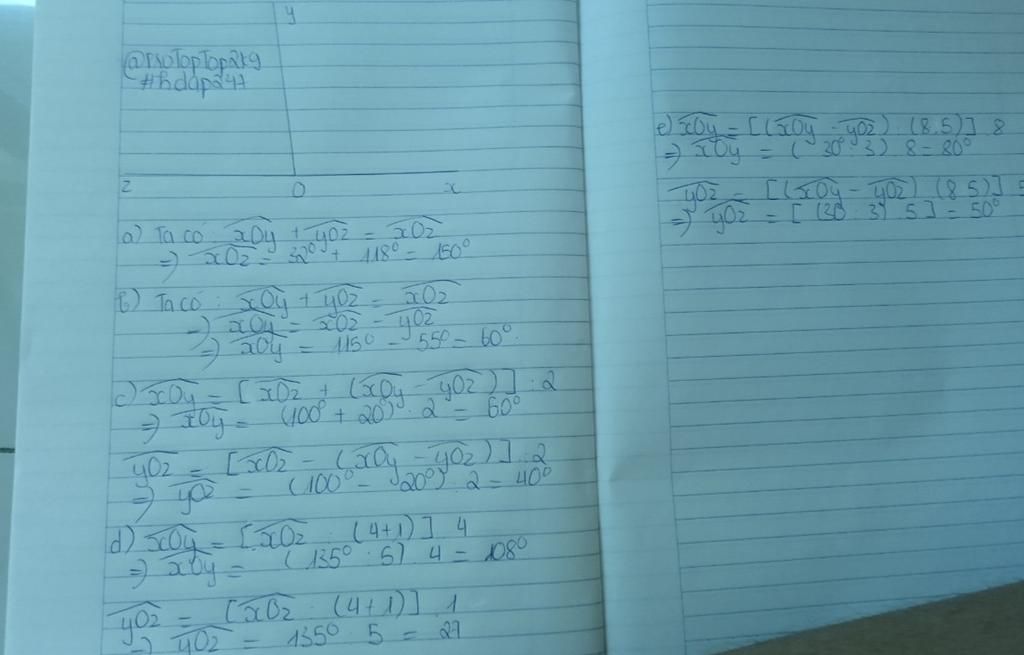 y
@ProTopTop2k9
#hdap247
z O x
a) Ta có: xOy + yOz = xOz
=> xOz = 32° + 118° = 150°
b) Ta có: xOy + yOz = xOz
=> xOy = xOz - yOz
=> xOy = 115° - 55° = 60°
c) xOy = [xOz + (xOy - yOz)] : 2
=> xOy = (100° + 20°) : 2 = 60°
yOz = [xOz - (xOy - yOz)] : 2
=> yOz = (100° - 20°) : 2 = 40°
d) xOy = [xOz : (4+1)] . 4
=> xOy = (135° : 5) . 4 = 108°
yOz = [xOz : (4+1)] . 1
=> yOz = 135° : 5 = 27
e) xOy = [(xOy - yOz) : (8-5)] . 8
=> xOy = (30° : 3) . 8 = 80°
yOz = [(xOy - yOz) : (8-5)] . 5
=> yOz = [(30 : 3) . 5] = 50°